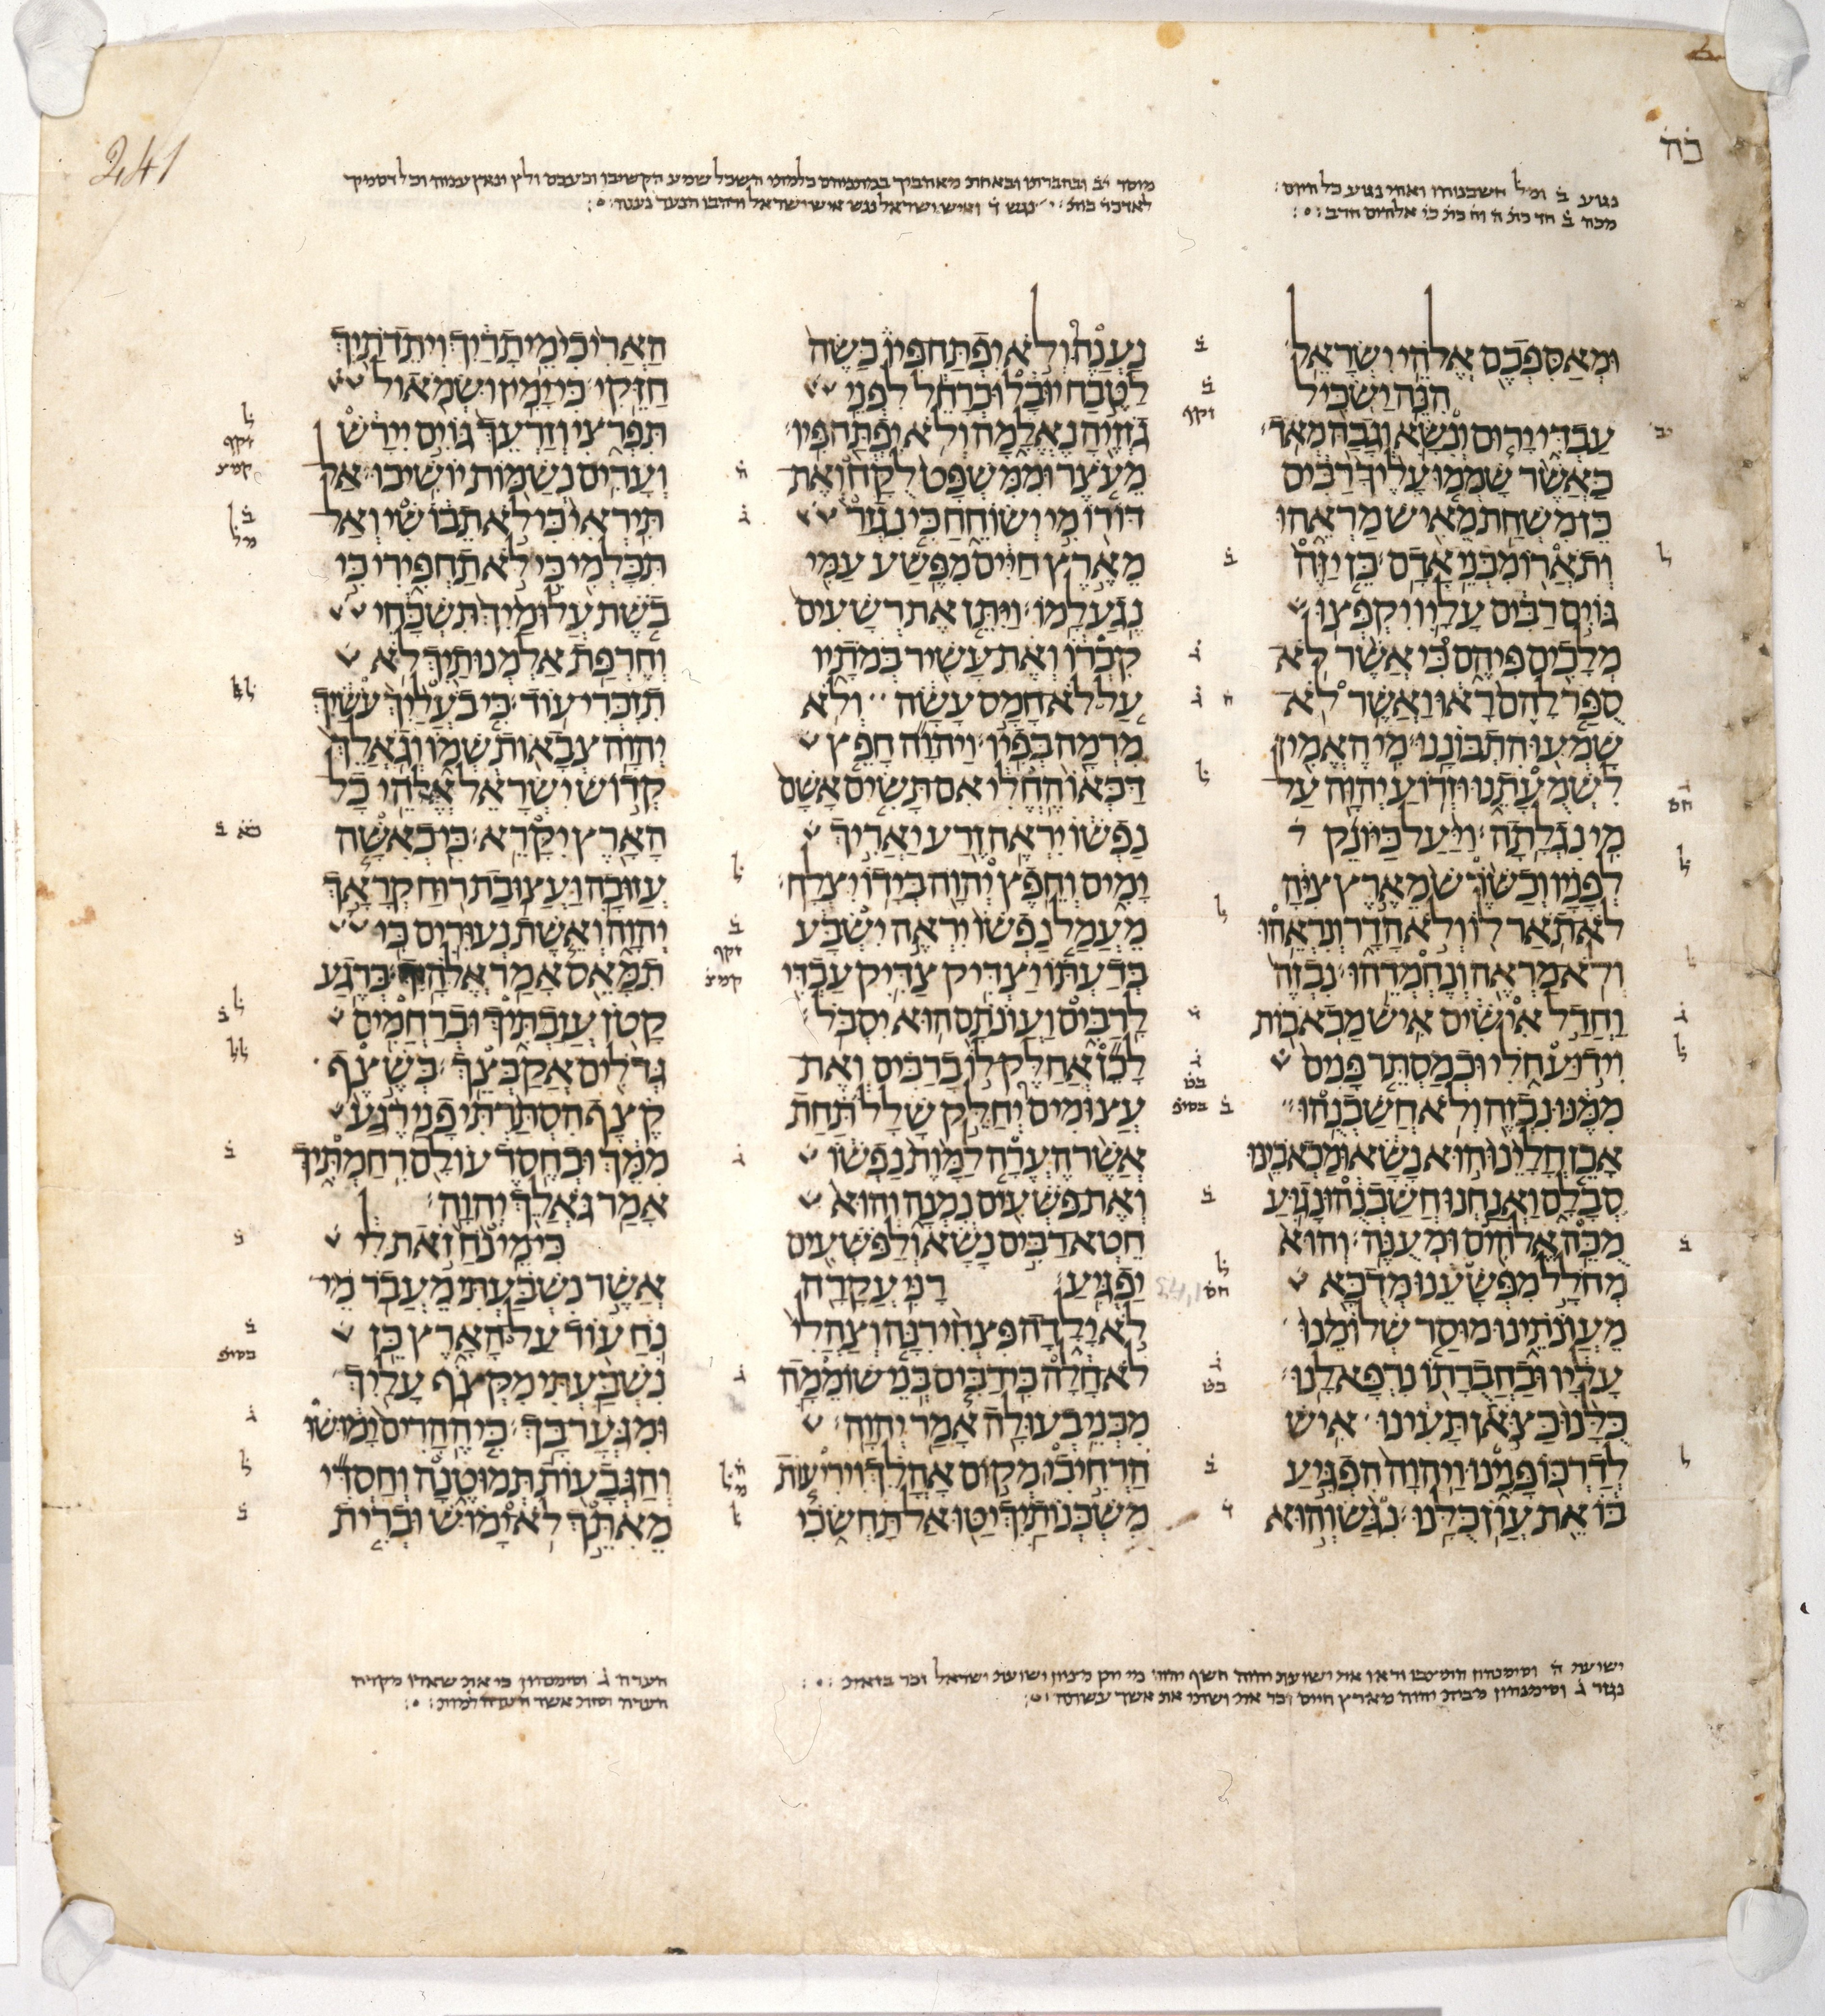 כה
241
נגוע ב ומל חשבנוהו ואהי נגוע כל היום
ומאספכם אלהי ישראל
הנה ישכיל
עבדי ירום ונשא וגבה מאד
כאשר שממו עליך רבים
כן משחת מאיש מראהו
ותארו מבני אדם כן יזה
גוים רבים עליו יקפצו
מלכים פיהם כי אשר לא
ספר להם ראו ואשר לא
שמעו התבוננו מי האמין
לשמעתנו וזרוע יהוה על
מי נגלתה ויעל כיונק
לפניו וכשרש מארץ ציה
לא תאר לו ולא הדר ונראהו
ולא מראה ונחמדהו נבזה
וחדל אישים איש מכאבות
וידוע חלי וכמסתר פנים
ממנו נבזה ולא חשבנהו
אכן חלינו הוא נשא ומכאבינו
סבלם ואנחנו חשבנהו נגוע
מכה אלהים ומענה והוא
מחלל מפשענו מדכא
מעונתינו מוסר שלומנו
עליו ובחברתו נרפא לנו
כלנו כצאן תעינו איש
לדרכו פנינו ויהוה הפגיע
בו את עון כלנו נגש והוא
נענה ולא יפתח פיו כשה
לטבח יובל וכרחל לפני
גזזיה נאלמה ולא יפתח פיו
מעצר וממשפט לקח ואת
דורו מי ישוחח כי נגזר
מארץ חיים מפשע עמי
נגע למו ויתן את רשעים
קברו ואת עשיר במתיו
על לא חמס עשה ולא
מרמה בפיו ויהוה חפץ
דכאו החלי אם תשים אשם
נפשו יראה זרע יאריך
ימים וחפץ יהוה בידו יצלח
מעמל נפשו יראה ישבע
בדעתו יצדיק צדיק עבדי
לרבים ועונתם הוא יסבל
לכן אחלק לו ברבים ואת
עצומים יחלק שלל תחת
אשר הערה למות נפשו
ואת פשעים נמנה והוא
חטא רבים נשא ולפשעים
יפגיע רני עקרה
לא ילדה פצחי רנה וצהלי
לא חלה כי רבים בני שוממה
מבני בעולה אמר יהוה
הרחיבי מקום אהלך ויריעות
משכנותיך יטו אל תחשכי
האריכי מיתריך ויתדתיך
חזקי כי ימין ושמאול
תפרצי וזרעך גוים יירש
וערים נשמות יושיבו אל
תיראי כי לא תבושי ואל
תכלמי כי לא תחפירי כי
בשת עלומיך תשכחי
וחרפת אלמנותיך לא
תזכרי עוד כי בעליך עשיך
יהוה צבאות שמו וגאלך
קדוש ישראל אלהי כל
הארץ יקרא כי כאשה
עזובה ועצובת רוח קראך
יהוה ואשת נעורים כי
תמאס אמר אלהיך ברגע
קטן עזבתיך וברחמים
גדלים אקבצך בשצף
קצף הסתרתי פני רגע
ממך ובחסד עולם רחמתיך
אמר גאלך יהוה
כי מי נח זאת לי
אשר נשבעתי מעבר מי
נח עוד על הארץ כן
נשבעתי מקצף עליך
ומגער בך כי ההרים ימושו
והגבעות תמוטנה וחסדי
מאתך לא ימוש וברית